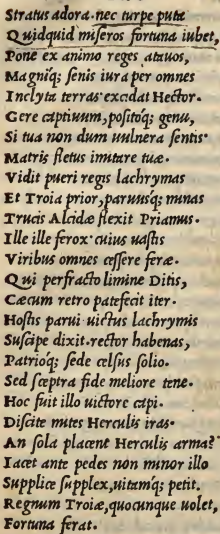 Stratus adora·nec turpe puta
Quidquid miseros fortuna iubet,
Pone ex animo reges atauos,
Magniq; senis iura per omnes
Inclyta terras·excidat Hector·
Gere captiuum, positoq; genu,
Si tua non dum uulnera sentis·
Matris fletus imitare tuæ·
Vidit pueri regis lachrymas
Et Troia prior, paruusq; minas
Trucis Alcidæ flexit Priamus·
Ille ille ferox·cuius uastis
Viribus omnes cessere feræ·
Qui perfracto limine Ditis,
Cæcum retro patefecit iter·
Hostis parui uictus lachrymis
Suscipe dixit·rector habenas,
Patrioq; sede celsus solio·
Sed sceptra fide meliore tene·
Hoc fuit illo uictore capi·
Discite mites Herculis iras·
An sola placent Herculis arma?
Iacet ante pedes non minor illo
Supplice supplex, uitamq; petit.
Regnum Troiæ, quocunque uolet,
Fortuna ferat·